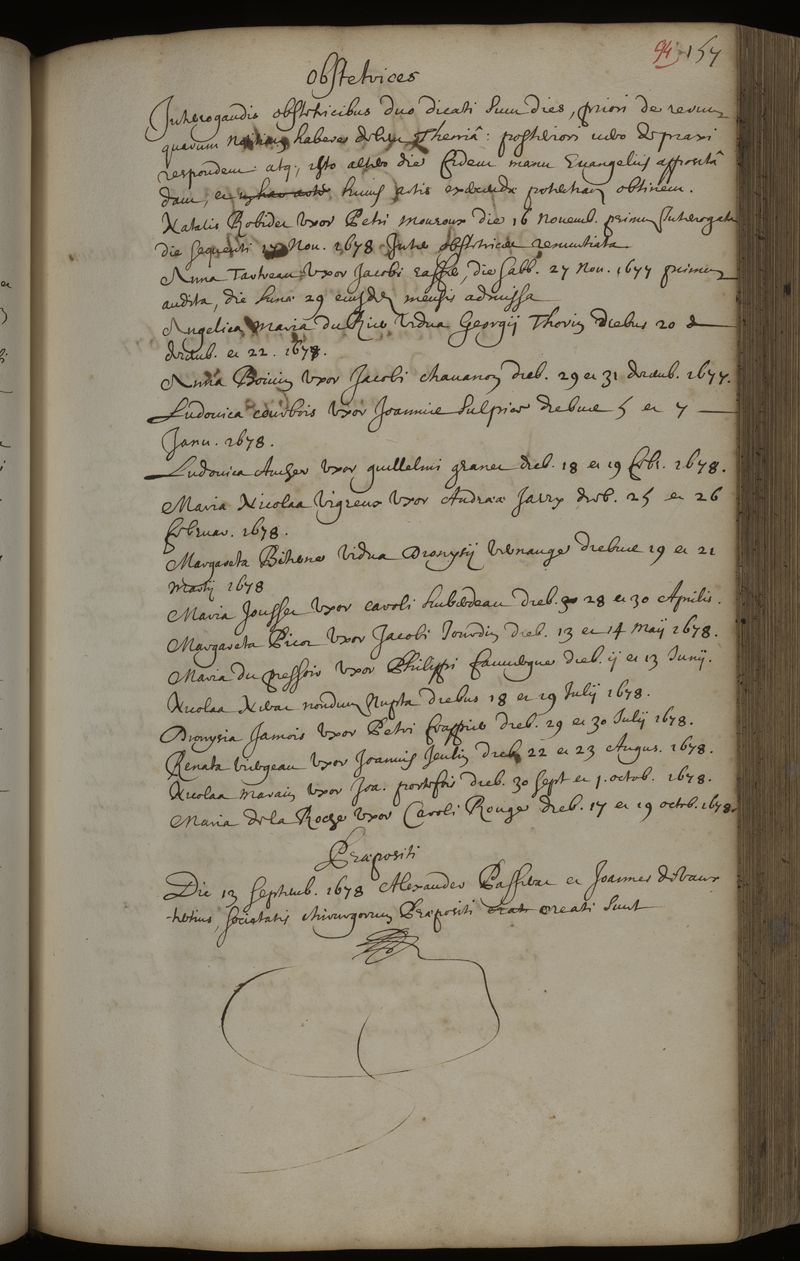 94 157
Obstetrices
Interrogandis obstetricibus duo dicati sunt dies, priori de rerum
quarum habere debent Theoriâ: posteriori vero de praxi
respondent atq, isto altero die fidem manu Evangeliis appositâ
dant, et huius artis potestatem obtinent.
Natalis Robider Uxor Petri Mouroux die 16 Novemb. primum Interrogata
die sequenti 17 Nov. 1678 Inter obstetrices renuntiata
Anna Tastreau Uxor Jacobi raffé, die sabb. 27 Nov. 1677 primum
audita, die Lunæ 29 eiusdem mensis admissa
Angelica Maria du Rieu Vidua Georgij Thorin Diebus 20 &
decemb. et 22. 1678.
Anna Boivin Uxor Jacobi chavanon dieb. 29 et 31 decemb. 1677.
Ludovica courbois Uxor Joannis Sulpice diebus 5 et 7
Janu. 1678.
Ludovica Auger Uxor guillelmi graner dieb. 18 et 19 febr. 1678.
Maria Nicolaa Vigreux Uxor Andreæ Jarry dieb. 25 et 26
februar. 1678.
Margareta Bihene Vidua Dionysij diebus 19 et 21
Martij 1678
Maria Jousset Uxor caroli hubedeau dieb. 28 et 30 Aprilis.
Margareta Picot Uxor Jacobi Jourdin dieb. 13 et 14 Maij 1678.
Maria du pressoir Uxor Philippi dieb. ij et 13 Junij.
Nicolaa nondum Nupta diebus 18 et 19 Julij 1678.
Dionysia Jamois Uxor Petri frappier dieb. 29 et 30 Julij 1678.
Renata Uxor Joannis Jeulin dieb. 22 et 23 Augus. 1678.
Nicolaa Marais Uxor Joa. portefois dieb. 30 sept et 1. octob. 1678.
Maria de la Roche Uxor Caroli Rouge dieb. 17 et 19 octob. 1678.
Præpositi
Die 13 Septemb. 1678 Alexander Passerat et Joannes
societatis chirurgorum Præpositi creati sunt